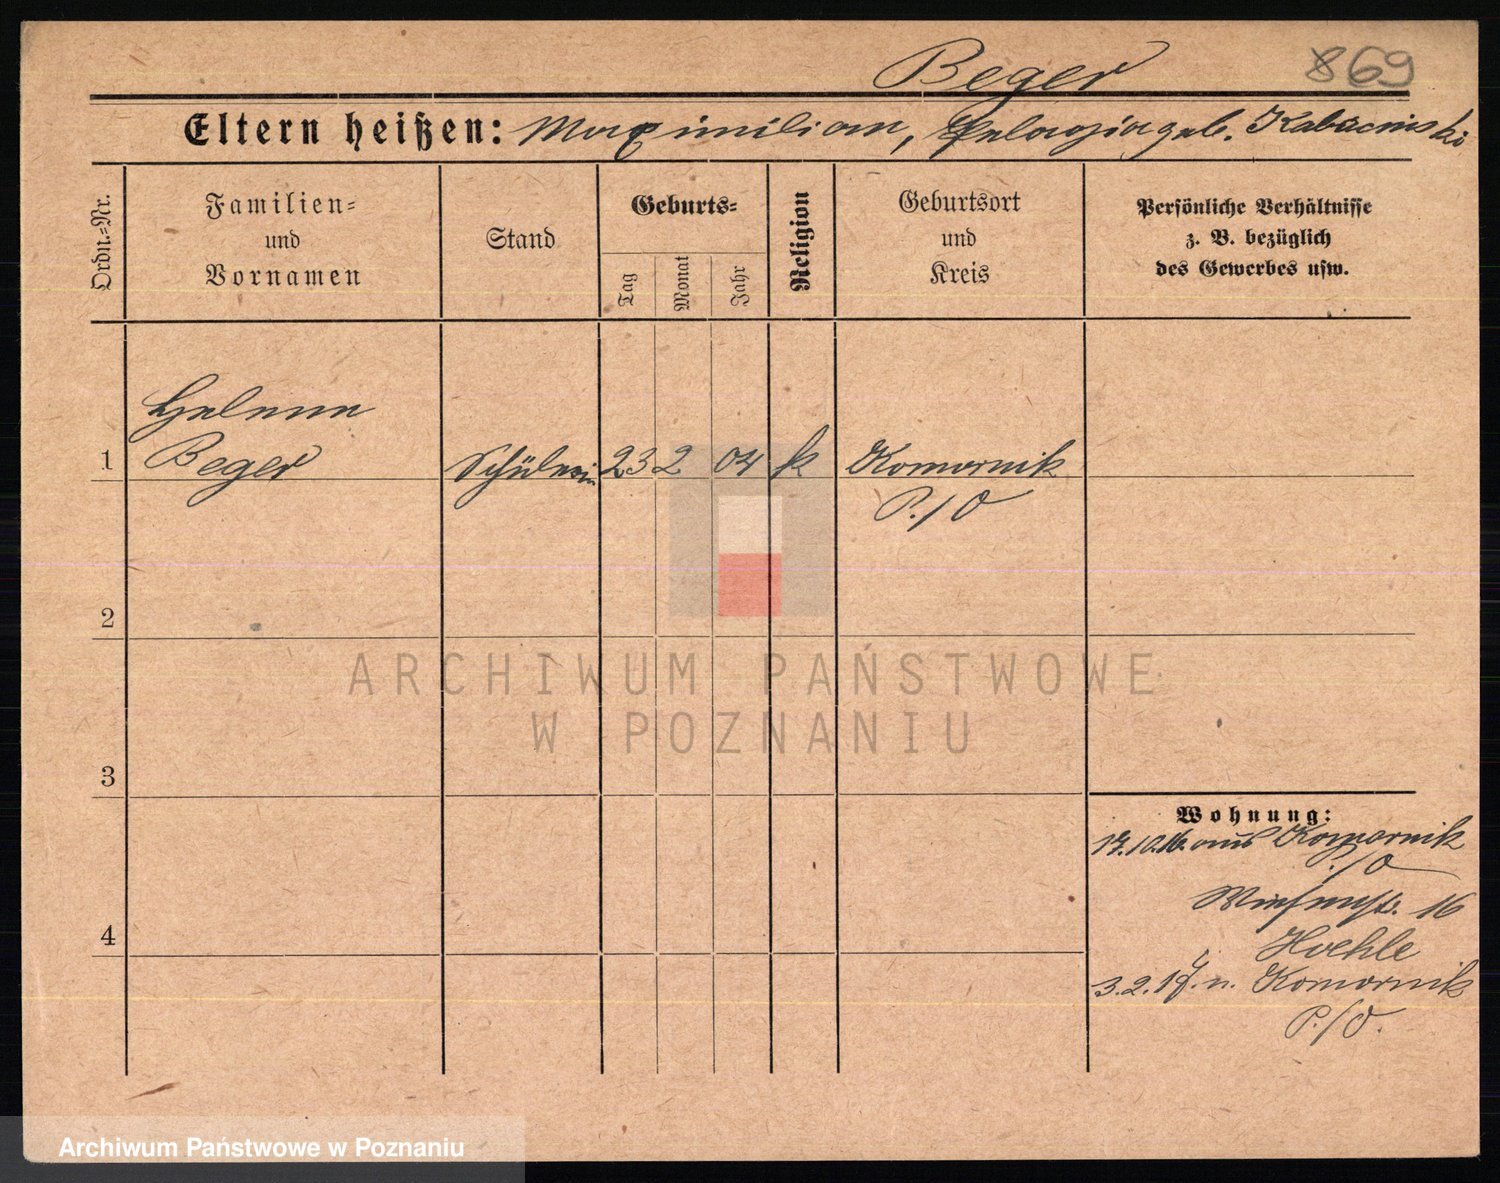 Beger 869
Eltern heißen: Maximilian, Pelagia geb. Kabacinski
Ordn.-Nr.
Familien-
und
Vornamen
Stand
Geburts-
Tag
Monat
Jahr
Religion
Geburtsort
und
Kreis
Persönliche Verhältnisse
z. B. bezüglich
des Gewerbes usw.
Helene
1 Beger Schülerin 23 2 04 k Komornik
P./O
2
3
4
Wohnung:
17.10.16. aus Komornik
P./O
Wiesenstr. 16
Hoehle
3.2.17. n. Komornik
P./O.
ARCHIWUM PAŃSTWOWE
W POZNANIU
Archiwum Państwowe w Poznaniu